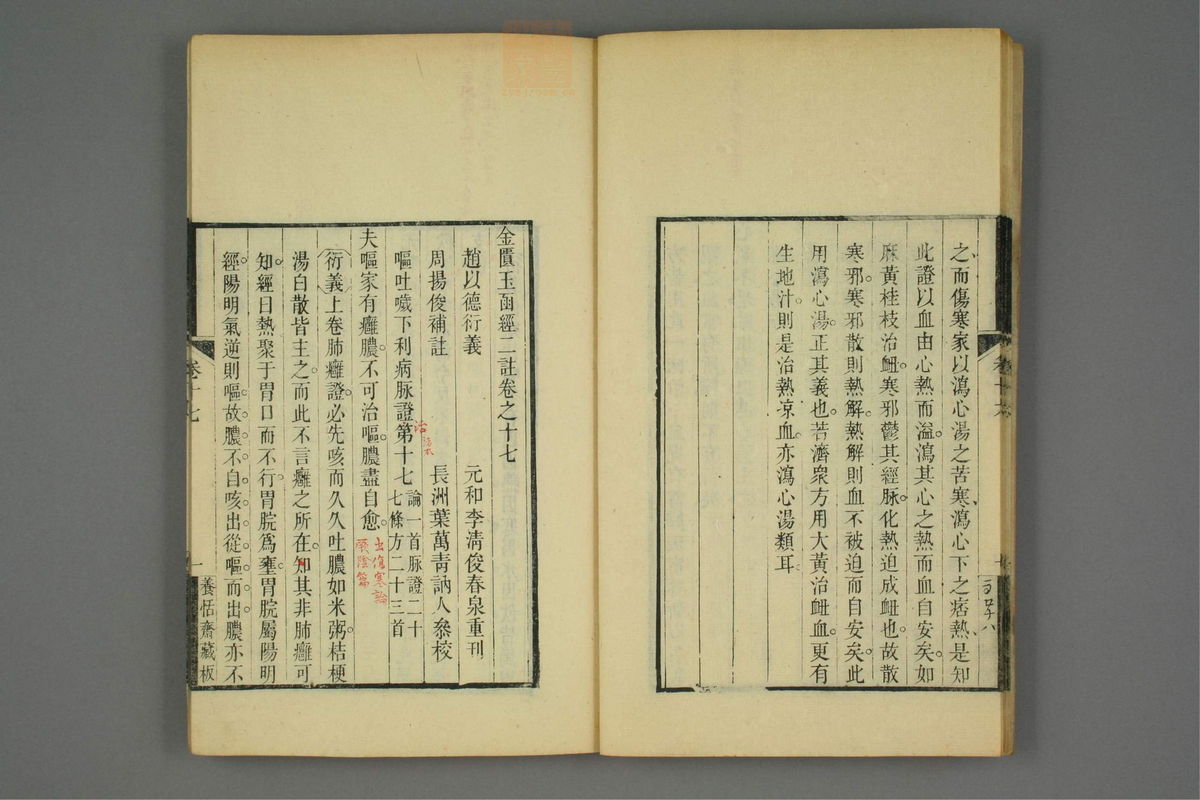 之而傷寒家以瀉心湯之苦寒瀉心下之痞熱是知
此證以血由心熱而溢瀉其心之熱而血自安矣如
麻黃桂枝治衄寒邪鬱其經脉化熱迫成衄也故散
寒邪寒邪散則熱解熱解則血不被迫而自安矣此
用瀉心湯正其義也若濟衆方用大黃治衄血更有
生地汁則是治熱凉血亦瀉心湯類耳
卷十六
金匱玉函經二註卷之十七
趙以德衍義 元和李清俊春泉重刊
周揚俊補註 長洲葉萬青訥人叅校
嘔吐噦下利病脉證第十七 論一首脉證二十
七條方二十三首
治
夫嘔家有癰膿不可治嘔膿盡自愈
出傷寒論
厥陰篇
衍義上卷肺癰證必先咳而久久吐膿如米粥桔梗
湯白散皆主之而此不言癰之所在知其非肺癰可
知經曰熱聚于胃口而不行胃脘爲壅胃脘屬陽明
經陽明氣逆則嘔故膿不自咳出從嘔而出膿亦不
卷十七
一
養恬齋藏板